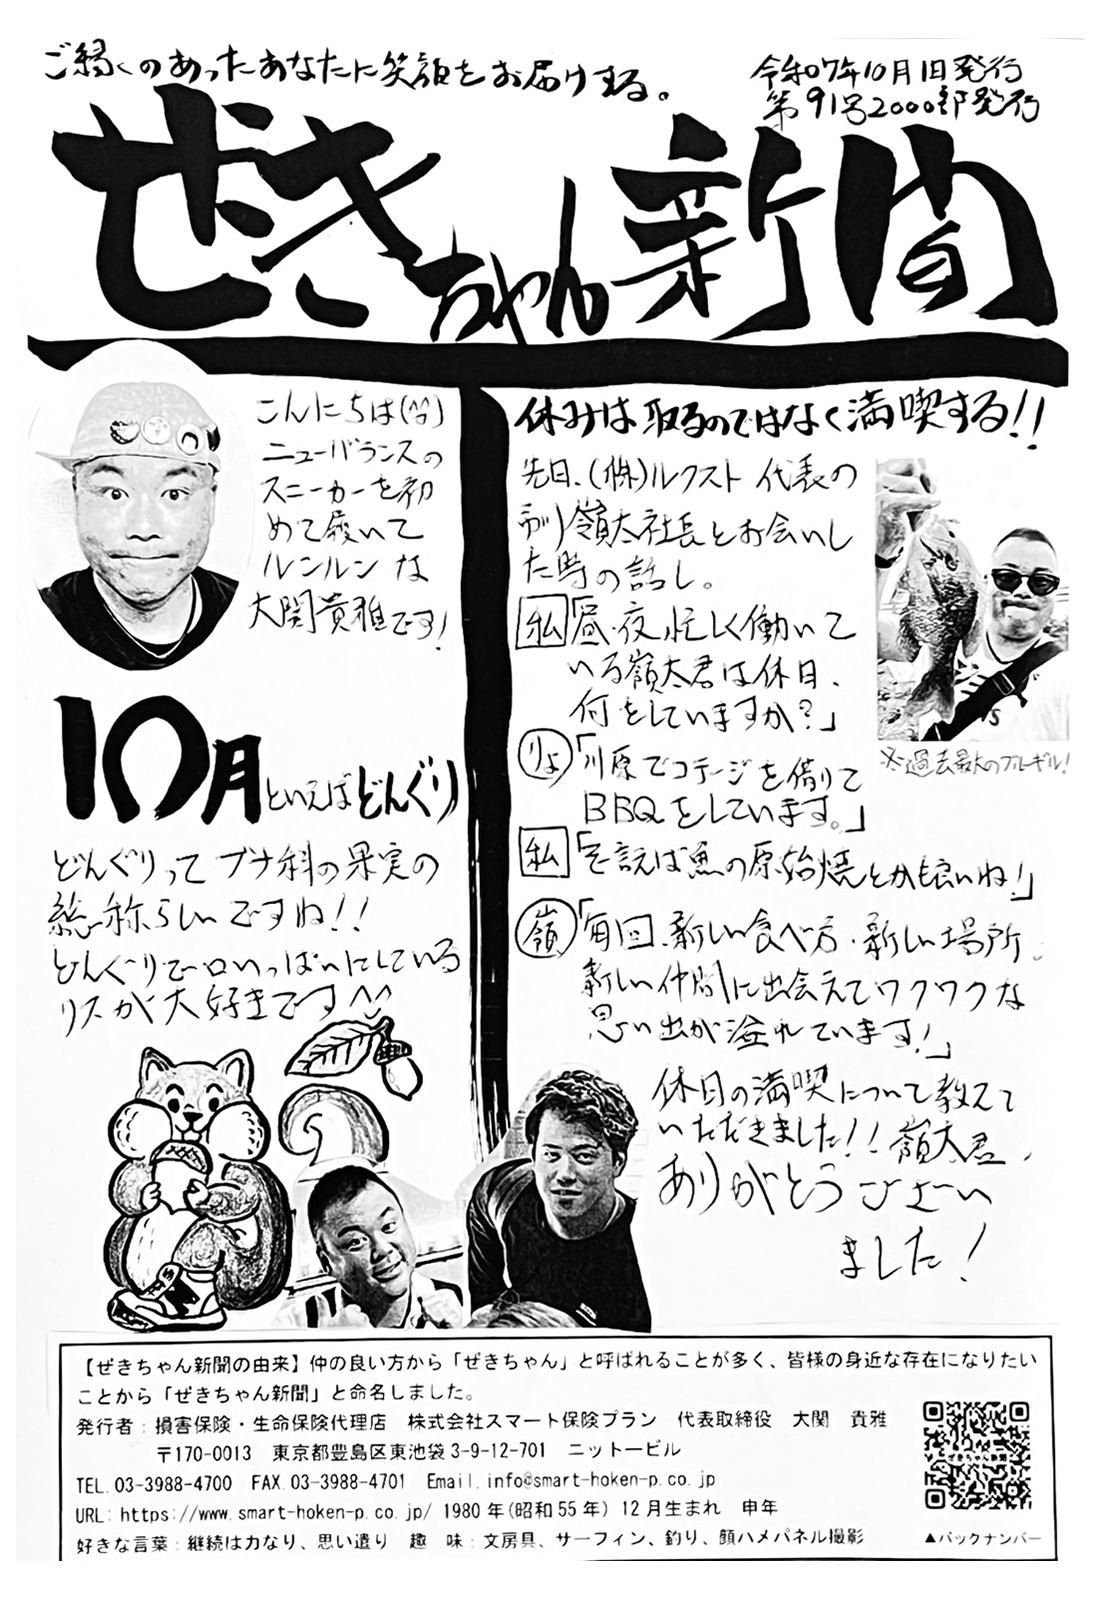 ご縁のあったあなたに笑顔をお届けする。
令和07年10月1日発行
第91号2000部発行
ぜきちゃん新聞
こんにちは(^^)
ニューバランスの
スニーカーを初
めて履いて
ルンルン な
大関貴雅です!
10月といえばどんぐり
どんぐりって ブナ科の果実の
総称らしいですね!!
どんぐりで口いっぱいにしている
リスが大好きです^^
休みは取るのではなく満喫する!!
先日、(株)ルクスト 代表の
嶺太社長とお会いし
た時の話し。
私「昼・夜、忙しく働いて
いる嶺太君は休日、
何をしていますか?」
りょ「川原でコテージを借りて
BBQをしています。」
私「そう言えば魚の原始焼とかも良いね!」
嶺「毎回、新しい食べ方・新しい場所
新しい仲間に出会えてワクワクな
思い出が溢れています!」
※過去最大のブルーギル!
休日の満喫について教えて
いただきました!! 嶺太君、
ありがとうございい
ました!
【ぜきちゃん新聞の由来】仲の良い方から「ぜきちゃん」と呼ばれることが多く、皆様の身近な存在になりたい
ことから「ぜきちゃん新聞」と命名しました。
発行者:損害保険・生命保険代理店 株式会社スマート保険プラン 代表取締役 大関 貴雅
〒170-0013 東京都豊島区東池袋3-9-12-701 ニットービル
TEL.03-3988-4700 FAX.03-3988-4701 Email.info@smart-hoken-p.co.jp
URL:https://www.smart-hoken-p.co.jp/ 1980年(昭和55年) 12月生まれ 申年
好きな言葉:継続は力なり、思い遣り 趣 味:文房具、サーフィン、釣り、顔ハメパネル撮影
ぜきちゃん新聞
▲バックナンバー